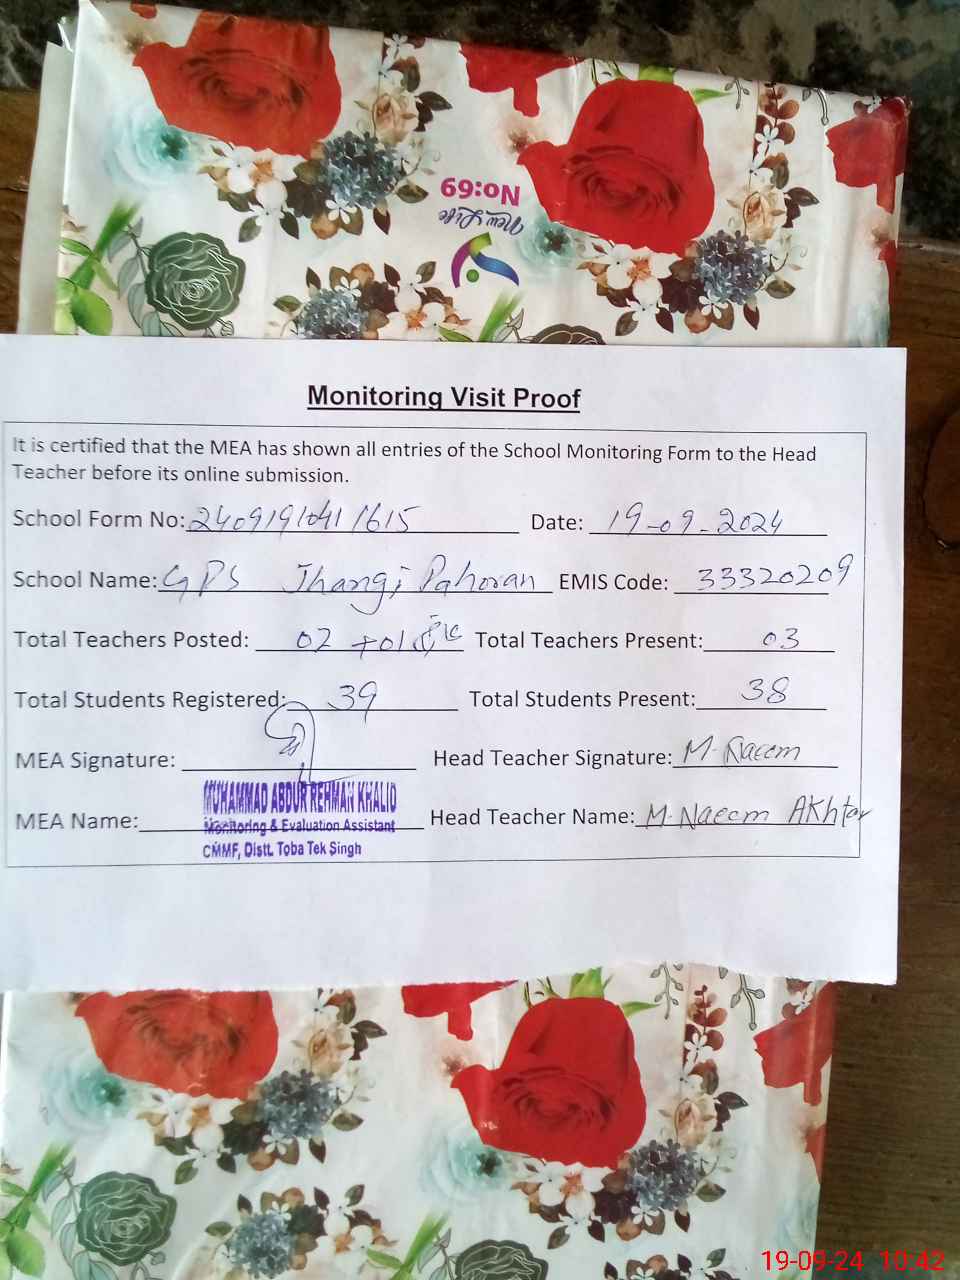 No:69
New Life
Monitoring Visit Proof
It is certified that the MEA has shown all entries of the School Monitoring Form to the Head
Teacher before its online submission.
School Form No: 24091910411615 Date: 19-09-2024
School Name: GPS Jhangi Pahoran EMIS Code: 33320209
Total Teachers Posted: 02 +01 Total Teachers Present: 03
Total Students Registered: 39 Total Students Present: 38
MEA Signature: Head Teacher Signature: M. Naeem
MUHAMMAD ABDUR REHMAN KHALID
MEA Name: Monitoring & Evaluation Assistant Head Teacher Name: M. Naeem Akhtar
CMMF, Distt. Toba Tek Singh
19-09-24 10:42